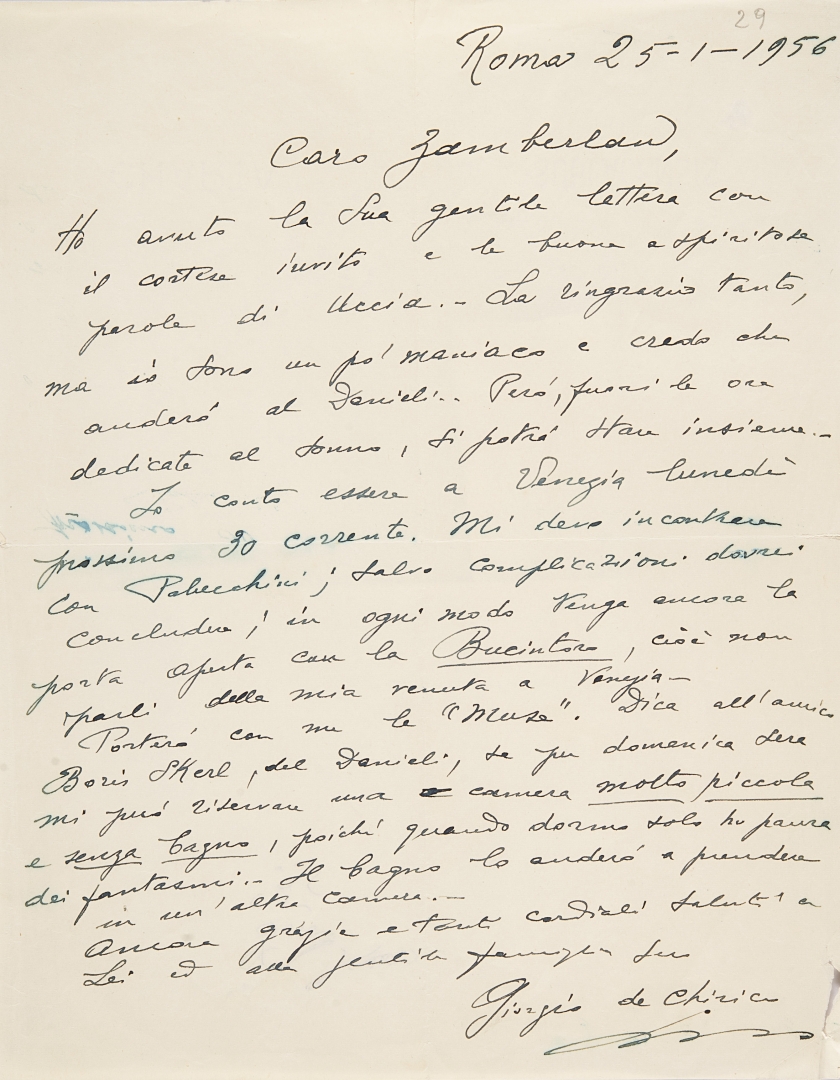 29
Roma 25-1-1956
Caro Zamberlan,
Ho avuto la Sua gentile lettera con
il cortese invito e le buone e spiritose
parole di Uccia.- La ringrazio tanto,
ma io sono un po' maniaco e credo che
anderó al Danieli.- Peró, fuori le ore
dedicate al sonno, si potrá stare insieme.-
Io conto essere a Venezia lunedì
prossimo 30 corrente. Mi devo incontrare
con ; salvo complicazioni dovrei
concludere; in ogni modo tenga ancora la
porta aperta con la Bucintoro, cioè non
parli della mia venuta a Venezia-
Porteró con me le "Muse". Dica all'amico
Boris Skerl, del Danieli, se per domenica sera
mi puó riservare una camera molto piccola
e senza bagno, poiché quando dormo solo ho paura
dei fantasmi.- Il bagno lo anderó a prendere
in un'altra camera.-
Ancora grazie e tanti cordiali saluti a
Lei ed alla gentile famiglia Suo
Giorgio de Chirico